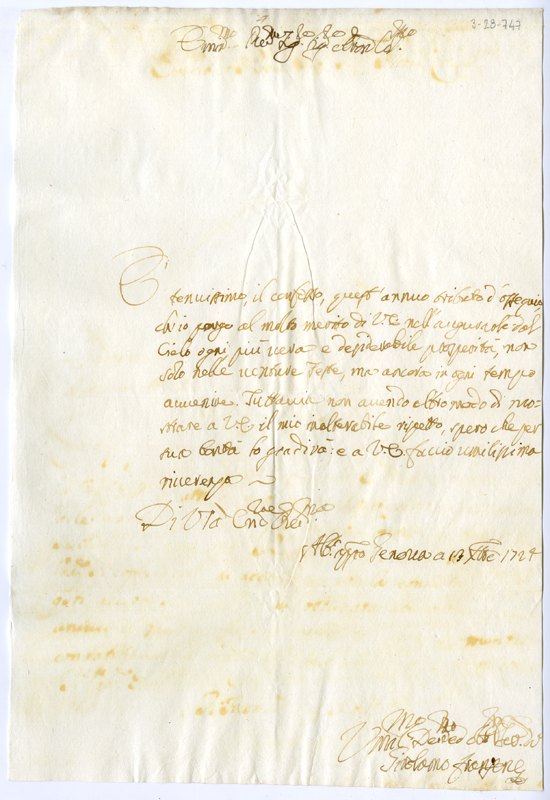 3-28-747
Em.mo Re.mo Sig. Sig.
È
tenuissimo, il confesso, quest'annuo tributo d'ossequio
ch'io porgo al molto merito di V.E. nell'augurarle dal
Cielo ogni più vera e desiderabile prosperità, non
solo nelle venture Feste, ma ancora in ogni tempo
avvenire. Tuttavia non avendo altro modo di mo-
strare a V.E. il mio inalterabile rispetto, spero che per
sua bontà lo gradirà: e a V.E. faccio umilissima
riverenza
Di V.ra Em.za Re.ma
Genova a 13 Xbre 1724
Umil.mo Dev.mo
Girolamo